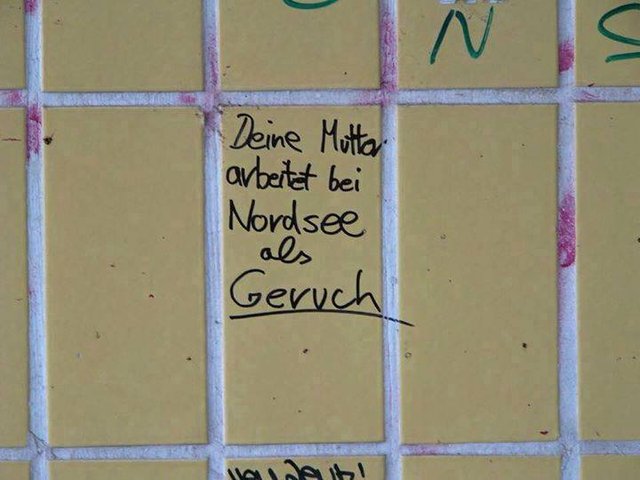 N
Deine Mutter
arbeitet bei
Nordsee
als
Geruch